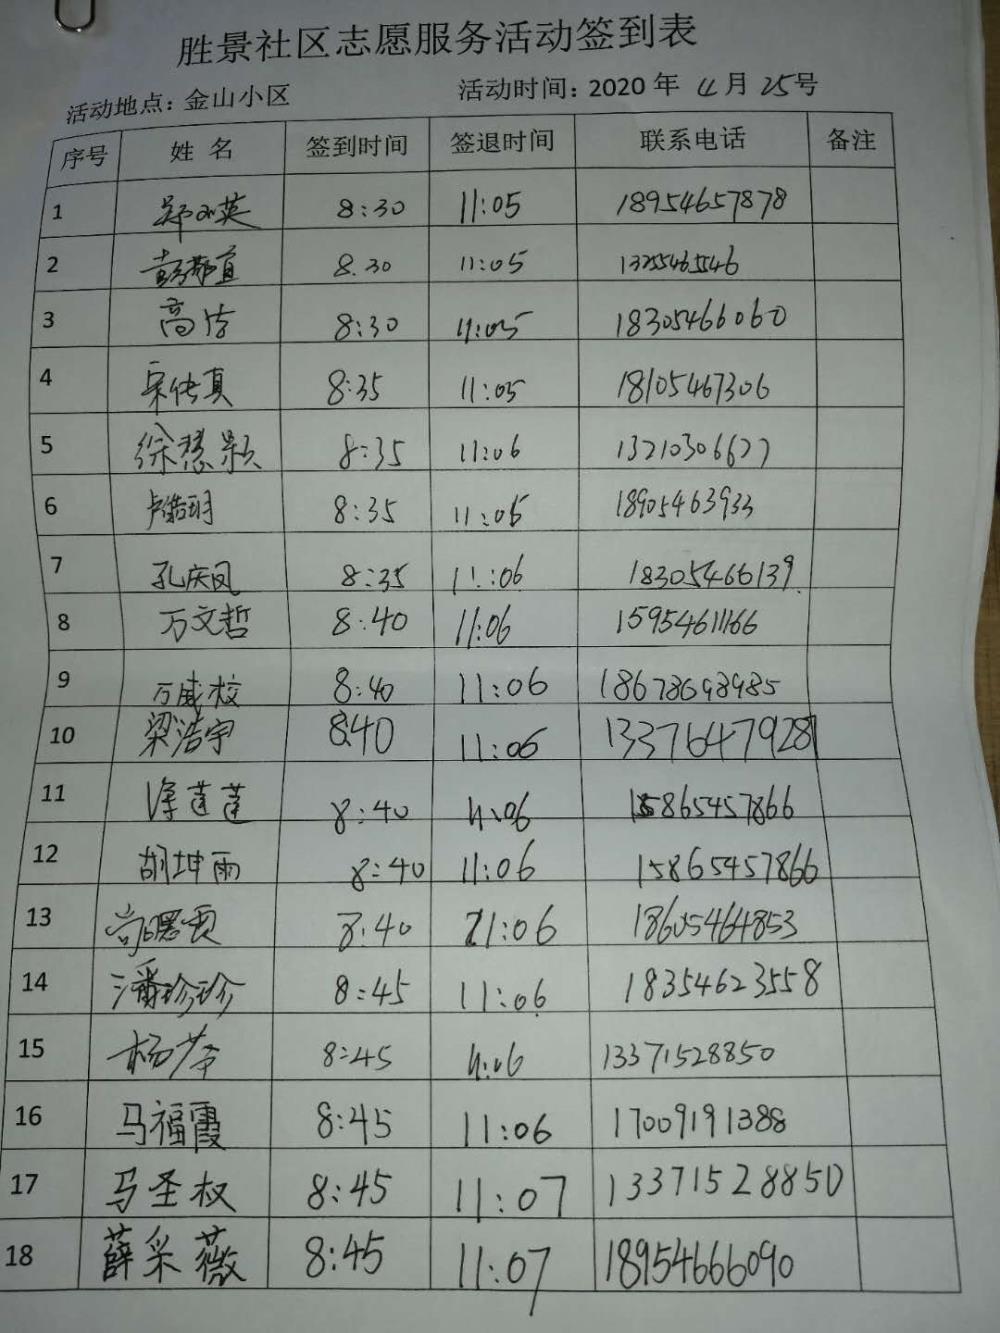 胜景社区志愿服务活动签到表
活动地点：金山小区 活动时间：2020 年 4月 25号
序号 姓 名 签到时间 签退时间 联系电话 备注
1 郑小英 8:30 11:05 18954657878
2 8.30 11:05 13255465546
3 高洁 8:30 11:05 18305466060
4 宋传真 8:35 11:05 18105467306
5 徐慧颖 8:35 11:06 13210306627
6 卢皓玥 8:35 11:06 18905463933
7 孔庆凤 8:35 11:06 18305466139
8 万文哲 8:40 11:06 15954611166
9 万威校 8:40 11:06 18678698985
10 梁浩宇 8:40 11:06 13376479287
11 徐莲莲 8:40 11:06 15865457866
12 胡坤雨 8:40 11:06 15865457866
13 8:40 11:06 18605464853
14 潘珍珍 8:45 11:06 18354623558
15 杨芬 8:45 11:06 13371528850
16 马福霞 8:45 11:06 17009191388
17 马圣权 8:45 11:07 13371528850
18 薛采薇 8:45 11:07 18954666090